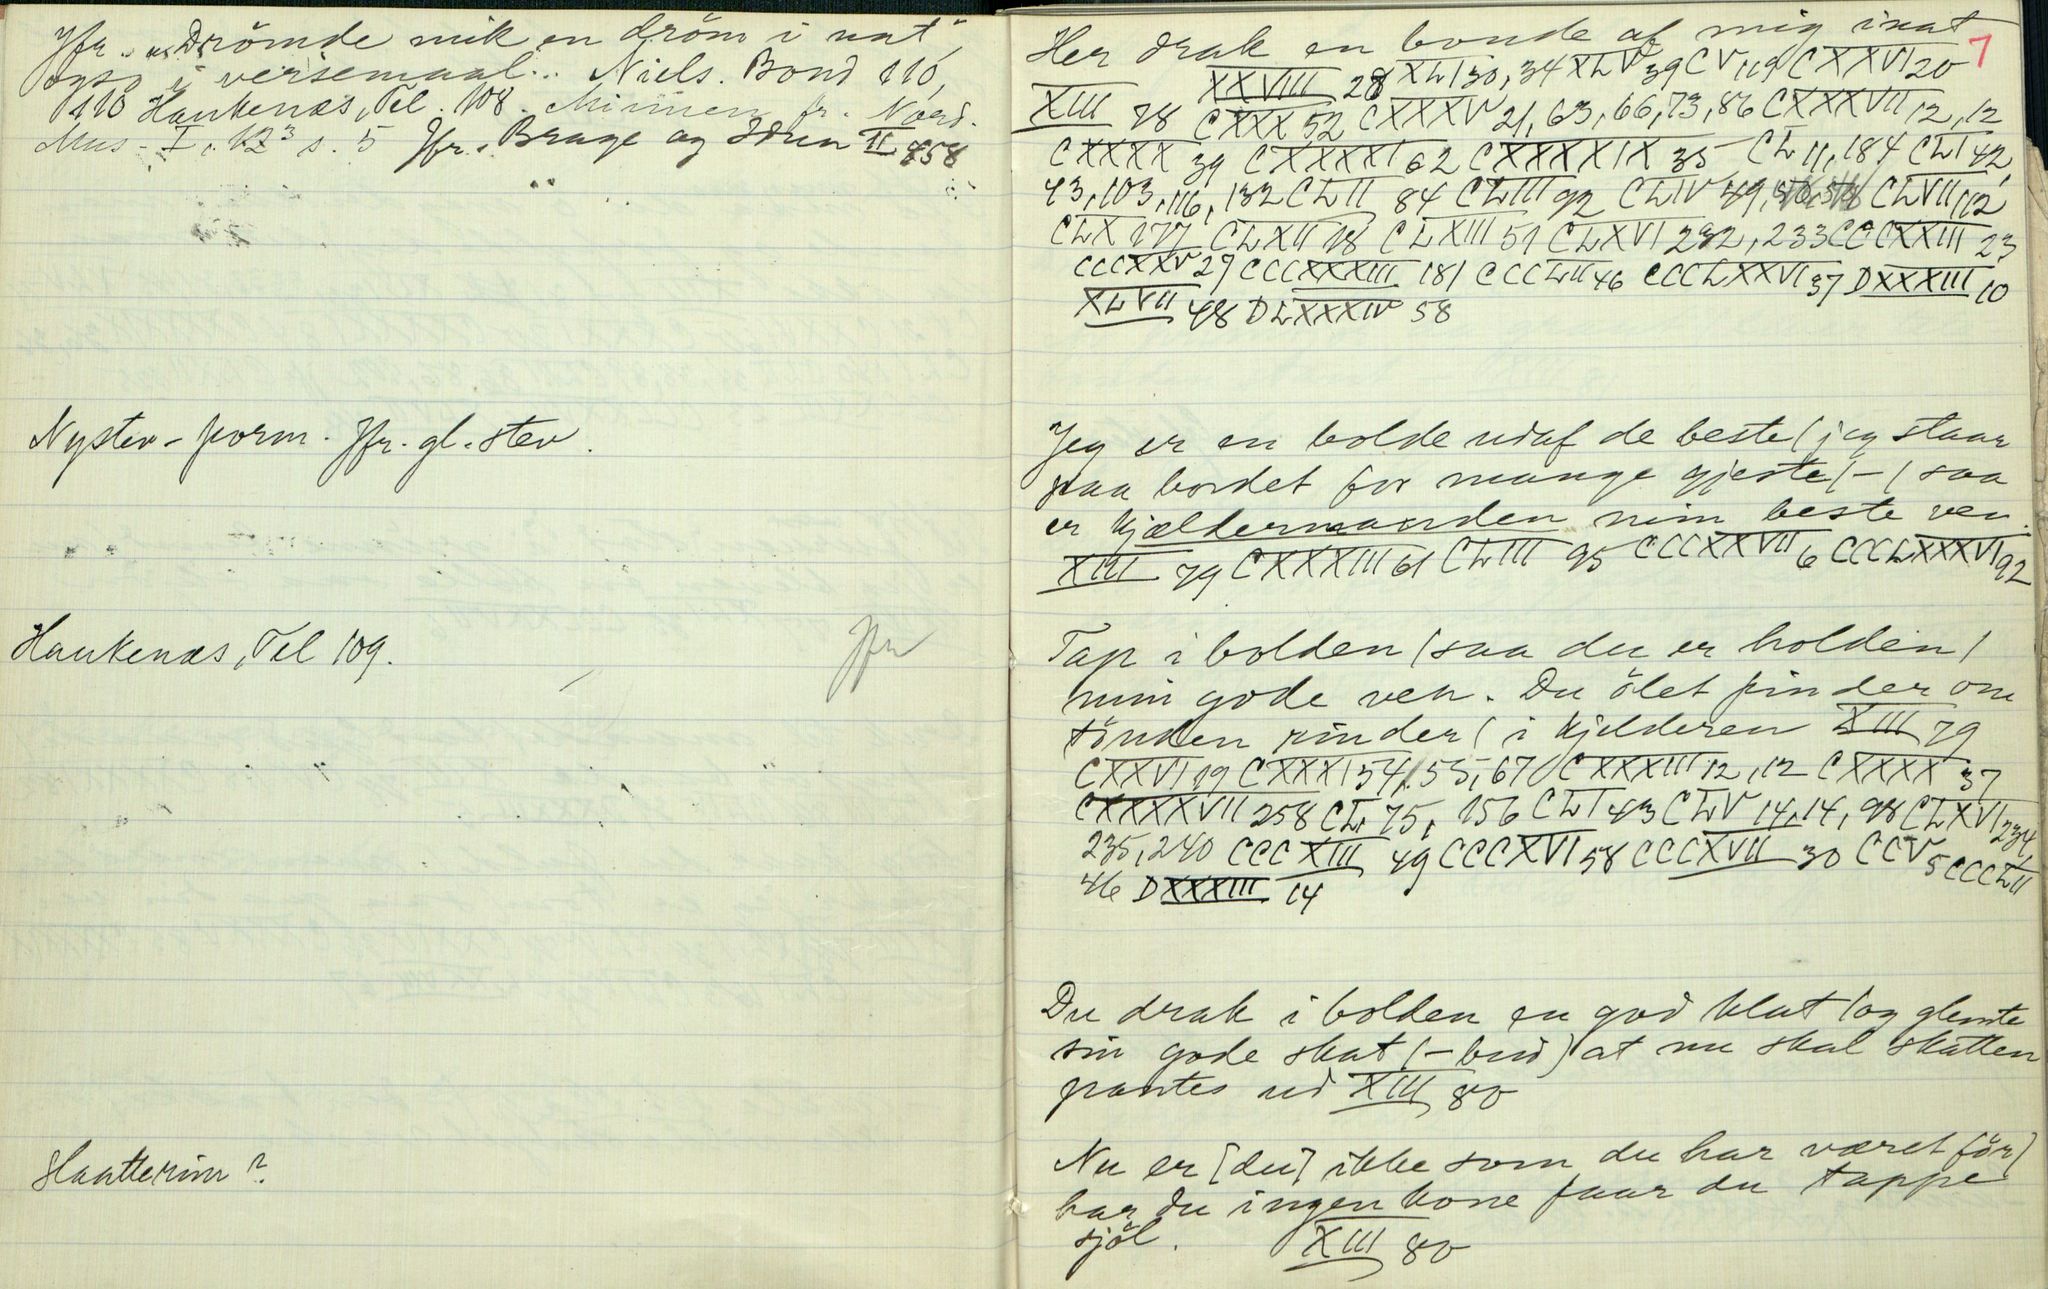 Jfr. „Drömde mik en dröm i nat“,
ogso i versemaal... Niels. Bond 110,
110 Haukenæs, Tel. 108. Minnen fr. Nord.
Mus. I, 12³ s. 5 Jfr. Brage og Idun II 858
Nystev-form. Jfr. gl. stev.
Haukenæs, Tel 109.
Jfr
Slaatterim?
7
Her drak en bonde af mig inat
XXVIII 28 XLI 30, 34 XLV 39 CV 119 CXXVI 20
XIII 78 CXXX 52 CXXXV 21, 63, 66, 73, 86 CXXXVII 12, 12
CXXXX 39 CXXXXI 62 CXXXXIX 35 CL 11, 184 CLI 42,
43, 103, 116, 132 CLII 84 CLIII 92 CLIV 49, CLVII 112
CLX 177 CLXII 18 CLXIII 51 CLXVI 232, 233 CCCXXIII 23
CCCXXV 27 CCCXXXIII 181 CCCLII 46 CCCLXXVI 37 DXXXIII 10
XLVII 48 DLXXXIV 58
Jeg er en bolde udaf de beste / jeg staar
paa bordet for mange gjeste / - / saa
er kjældermanden min beste ven.
XIII 79 CXXXIII 61 CLIII 95 CCCXXVII 6 CCCLXXXVI 92
Tap i bolden / saa du er holden /
min gode ven. Du ölet finder om
tönden rinder / i kjelderen XIII 79
CXXVI 19 CXXXI 54, 55, 67 CXXXIII 12, 12 CXXXX 37
CXXXXVII 258 CL 75, 156 CLI 43 CLV 14, 14, 98 CLXVI 234,
235, 240 CCCXIII 49 CCCXVI 58 CCCXVII 30 CCV 5 CCCLII
46 DXXXIII 14
Du drak i bolden en god klat / og glemte
sin gode skat (- bud) at nu skal skatten
pantes ud XIII 80
Nu er [du] ikke som du har været för /
har du ingen kone faar du tappe
sjöl. XIII 80